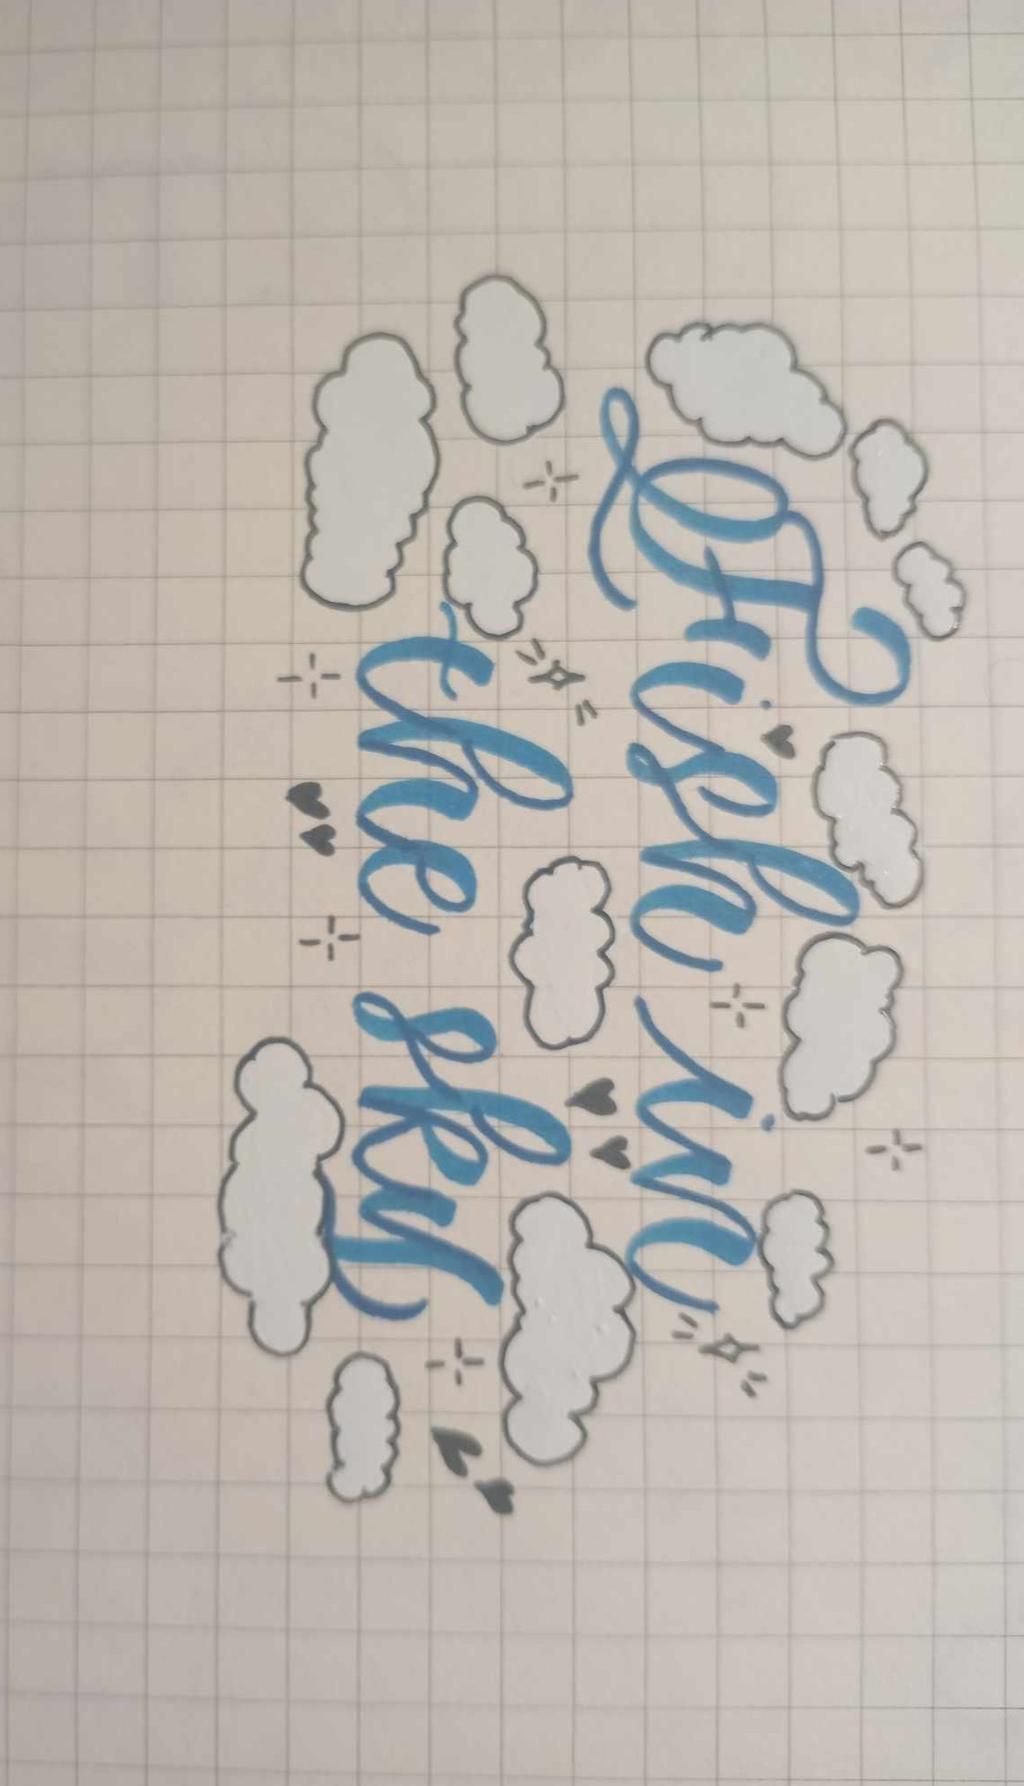 Fish in
the sky